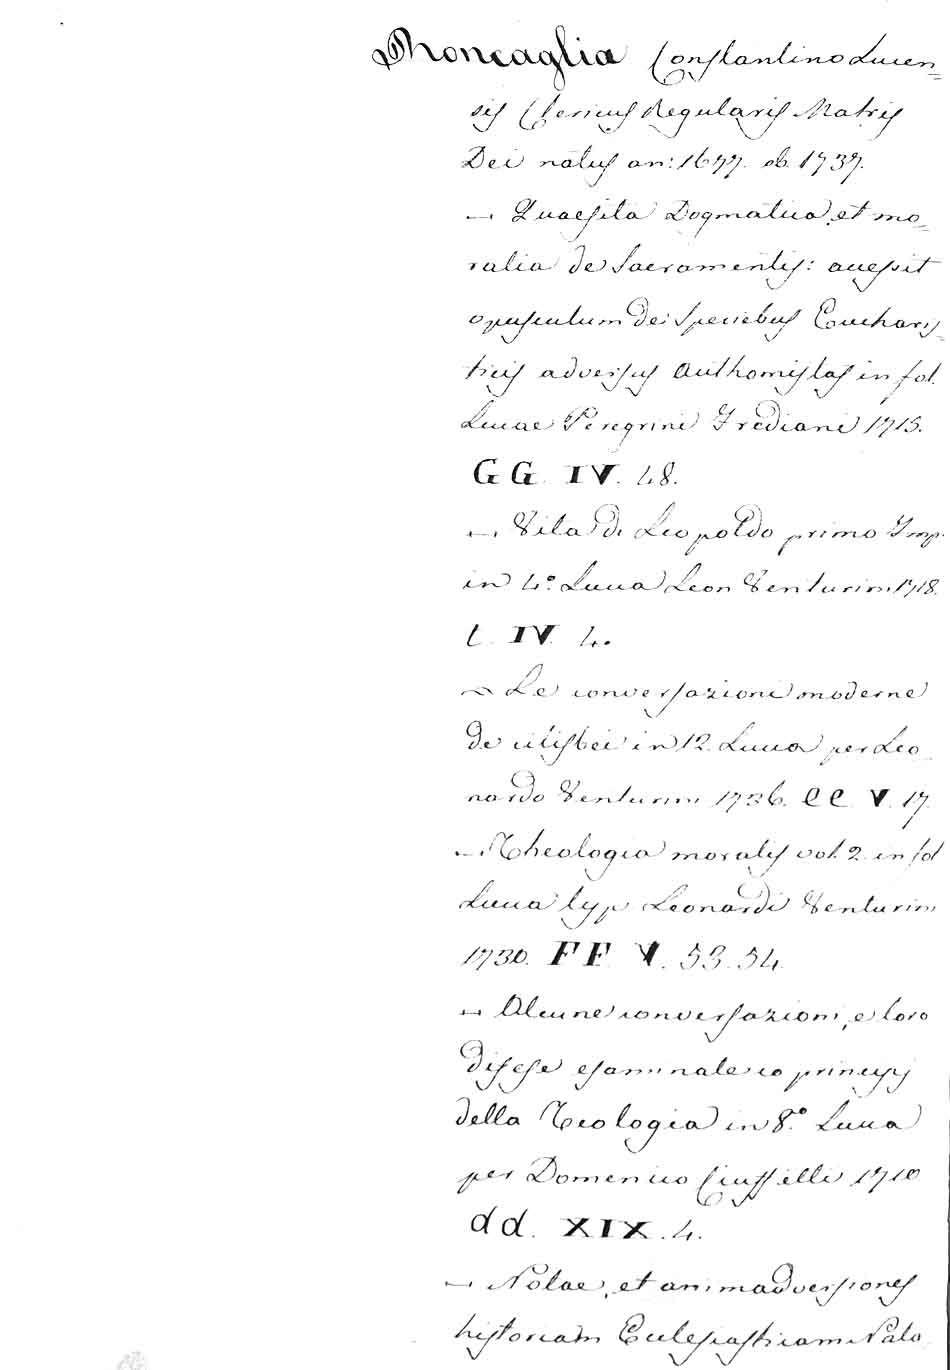 Roncaglia Constantino Lucen=
sis Clericus Regularis Matris
Dei natus an: 1677. ob. 1737.
— Quaesita Dogmatica, et mo=
ralia de Sacramentis: accessit
opusculum de Speciebus Eucharis=
ticis adversus Authomistas in fol.
Lucae Peregrini Frediani 1715.
GG. IV. 48.
— Vita di Leopoldo primo Imp.
in 4.° Lucca Leon Venturini 1718.
L. IV. 4.
— Le conversazioni moderne
de cicisbei in 12. Lucca per Leo
nardo Venturini 1736. CC V. 17.
— Theologia moralis vol. 2 in fol
Lucca typ Leonardi Venturini
1730. FF. V. 53. 54.
— Alcune conversazioni, e loro
difese esaminate co principj
della Teologia in 8.° Lucca
per Domenico Ciuffetti 1710
dd. XIX. 4.
— Notae, et animadversiones
historiam Ecclesiasticam Nata